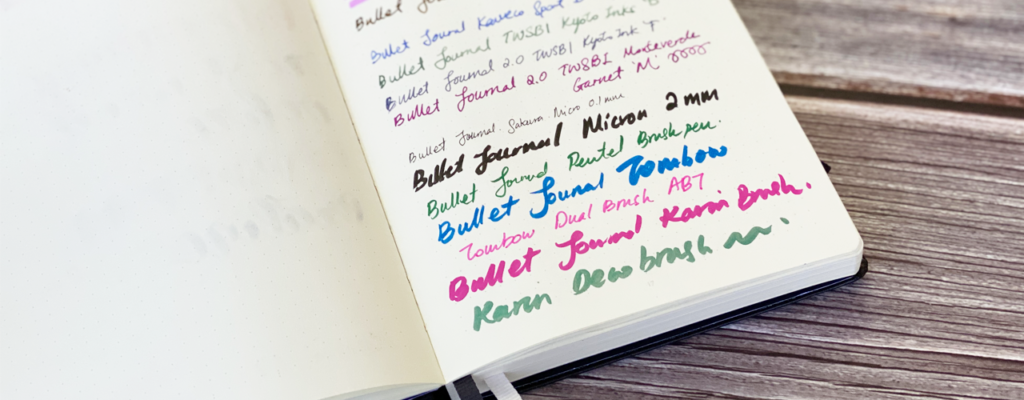 Bullet Jou
Bullet Journal Kaweco Sport
Bullet Journal TWSBI Kyoto Inks "F"
Bullet Journal 2.0 TWSBI Kyoto Ink "F"
Bullet Journal 2.0 TWSBI Monteverde
Garnet "M"
Bullet Journal. Sakura. Micro 0.1mm
Bullet Journal Micron 2mm
Bullet Journal Pentel Brush pen.
Bullet Jounal Tombow
Tombow Dual Brush AB7
Bullet Journal Karin Brush.
Karin Deco brush